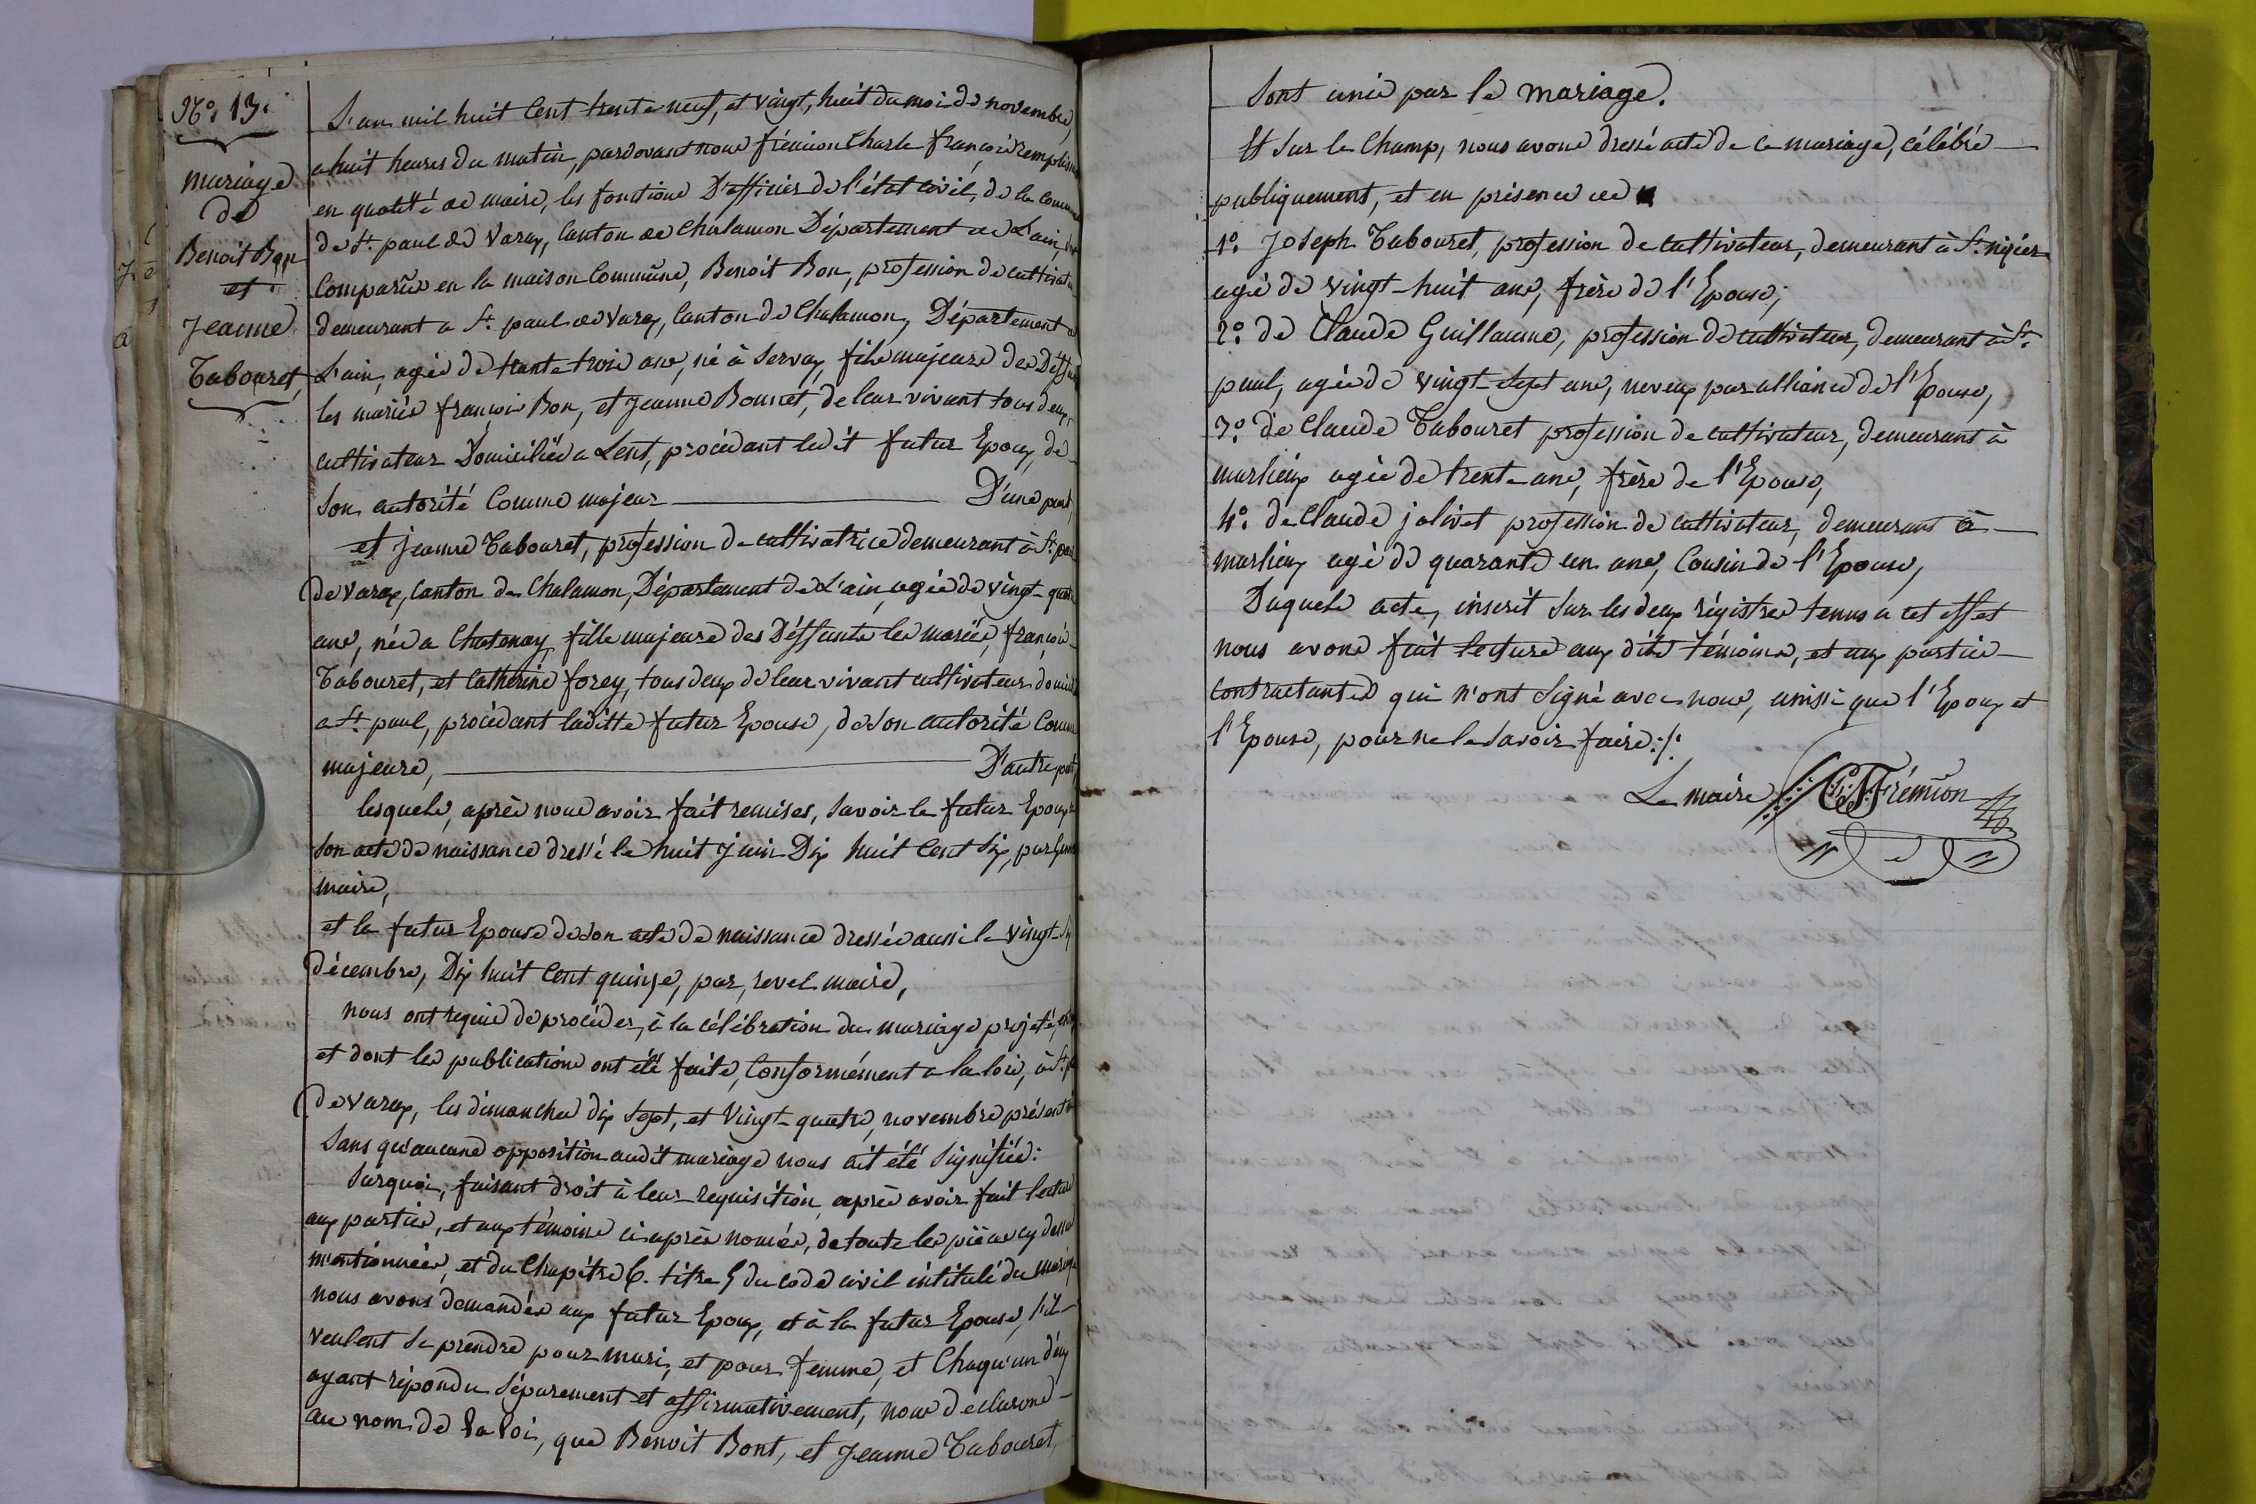 N.º 13.
mariage
de
Benoit Bon
et
Jeanne
Tabouret,
L'an mil huit Cent trente neuf, et vingt, huit du moi de novembre,
a huit heures du matin, pardevant nous frémion Charle françois remplissant
en qualité de maire, les fonctions D'officier de l'état civil, de la commune
de St. paul de Varax, Canton de Chalamon Département de L'ain,
Comparus en la maison Commune, Benoit Bon, profession de cultivateur
demeurant a St. paul de Varax, Canton de Chalamon, Département de
L'ain, agée de trante trois ans, né à Servax, fils majeure des Deffunts
les mariés françois Bon, et Jeanne Bonnet, de leur vivant tous deux,
cultivateur Domiciliés a Lent, procédant ledit futur Epoux, de
son autorité Comme majeur D'une part,
et Jeanne Tabouret, profession de cultivatrice demeurant à St. paul
de Varax, Canton de Chalamon, Département de L'ain, agée de vingt-quatre
ans, née a Chatenay, fille majeure des Déffunts les mariés, françois
Tabouret, et Catherine forey, tous deux de leur vivant cultivateur domiciliés
a St. paul, procédant laditte futur Epouse, de son autorité Comme
majeure, D'autre part,
lesquels, après nous avoir fait remises, savoir le futur Epoux
son acte de naissance dressé le huit Juin Dix huit Cent Six, par
maire,
et la futur Epouse de son acte de naissance dressée aussi le vingt-six
décembre, Dix huit Cent quinze, par, revel maire,
nous ont requis de procéder, à la célébration du mariage projeté,
et dont les publications ont été faite, Conformément a la loix, à St. paul
de varax, les dimanches dix sept, et vingt-quatre, novembre présent
sans qu'aucune opposition audit mariage nous ait été signifiée:
Surquoi, faisant droit à leur requisition après avoir fait lecture
aux parties, et aux témoins ci après només, de toute les pièces cy dessus
mentionnées, et du Chapitre 6. titre 5 du code civil intitulé du mariage
nous avons demandés aux futur Epoux, et à la futur Epouse, s'il
veulent se prendre pour mari, et pour femme, et Chaqu'un d'eux
ayant répondu séparement et affirmativement, nous déclarons
au nom de la loi, que Benoit Bont, et Jeanne Tabouret,
Sont unis par le mariage.
Et sur le Champ, nous avons dressé acte de ce mariage, célébré
publiquement, et en présence de
1º. Joseph Tabouret, profession de cultivateur, demeurant à St. nizier
agée de vingt-huit ans, frère de l'Epouse,
2º. de Claude Guillaume, profession de cultivateur, demeurant à St.
paul, agée de vingt-sept ans, neveux par alliance de l'Epouse,
3º. de Claude Tabouret profession de cultivateur, demeurant à
marlieux agée de trente ans, frère de l'Epouse,
4º. de Claude jolivet profession de cultivateur, demeurant à
marlieux agé de quarante un ans, Cousin de l'Epouse,
Duquels acte, inscrit sur les deux régistres tenus a cet effet
nous avons fait lecture aux dits témoins, et aux parties
contractantes qui n'ont signé avec nous, ainsi que l'Epoux et
l'Epouse, pour ne le savoir faire :/:
Le maire CFFrémion